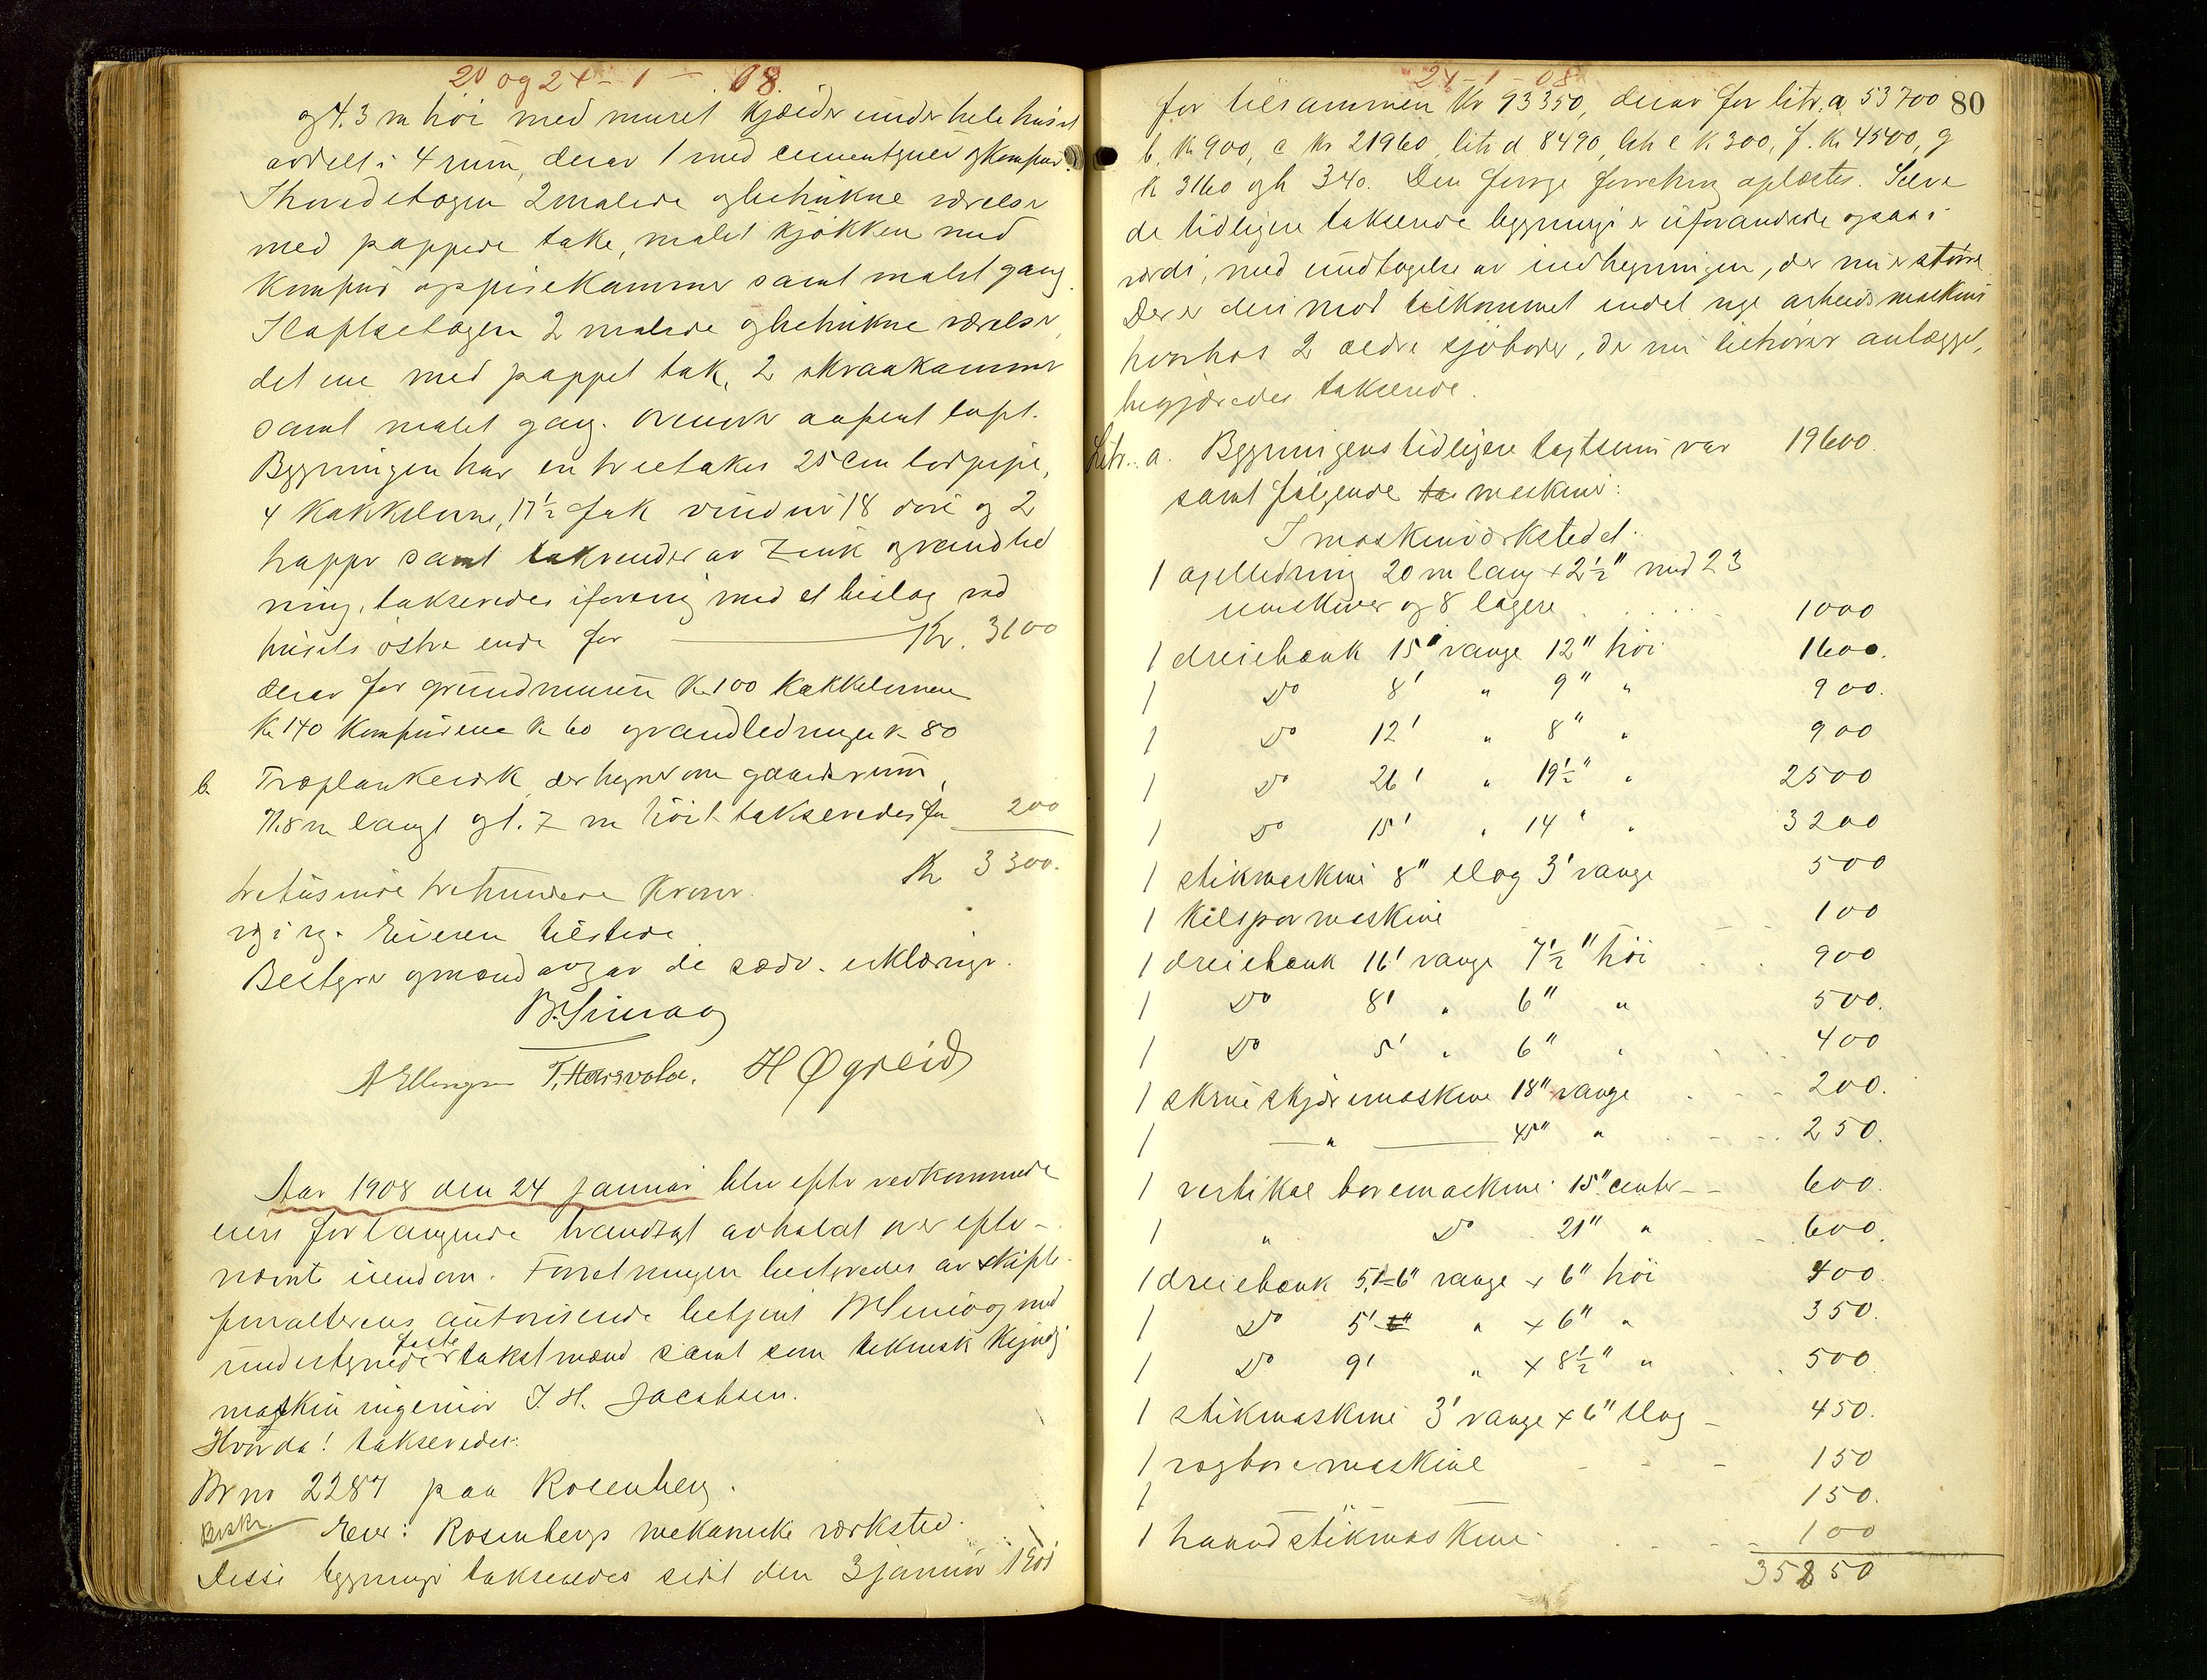 20 og 24-1-08.
og 4.3 m høi med muret kjælder under hele huset
avdelt i 4 rum, derav 1 med cementgulv og komfur.
I hovedetagen 2 malede og betrukne værelser
med pappede take, malet kjøkken med
komfur og spisekammer samt malet gang.
I loftsetagen 2 malede og betrukne værelser,
det ene med pappet tak, 2 skraakammer
samt malet gang. Ovenover aapent loft.
Bygningen har en treetakes 25 cm lodpipe,
4 kakkelovne, 17½ fak vinduer 18 døre og 2
trapper samt takrender av Zink og vandled
ning, takseredes iforening med et bislag ved
husets østre ende for Kr. 3100
derav for grundmuren Kr 100 kakkelovnene
Kr 140 komfurene Kr 60 og vandledningen Kr 80
b. Træplankeverk der hegner om gaardsrum,
71.8 m langt og 1.7 m høit takseredes for 200
Kr 3300.
tretusinde trehundrede Kroner.
Eieren tilstede
Bestyrer og mænd avgav de sædv. erklæringer.
A Ellingsen T. Haarvola. H Øgreid
Aar 1908 den 24 januar blev efter vedkommende
eiers forlangende brandtaxt avholdt over efter-
nævnte eiendom. Forretningen bestyredes av skifte-
forvalterens autoriserede betjent med
undertegnede faste takstmænd samt som teknisk kyndig
maskiningeniør J. H. Jacobsen.
Hvorda! takseredes:
Br no 2287 paa Rosenberg.
Beskr. Eier: Rosenbergs mekaniske verksted.
Disse bygninger takseredes sidst den 3 januar 1901
24-1-08
80
for tilsammen Kr 93350, derav for litr. a 53700
b. Kr 900, c Kr 21960, litr d 8490, litr e K 300, f. Kr 4500, g
K 3160 og h 340. Den forrige forretning oplæstes. Selve
de tidligere takserede bygninger er uforandrede ogsaa i
værdi, med undtagelse av indhegningen, der nu er større
Der er derimod tilkommet endel nye arbeidsmaskiner
hvorhos 2 ældre sjøboder, der nu tilhører anlægget,
begjæredes takserede.
Litr. a. Bygningens tidligere taxtsum var 19600.
samt følgende maskiner:
I maskinverkstedet:
1 axelledning 20 m lang + 2½" med 23
remskiver og 8 lagere 1000
1 dreiebænk 15" vange 12" høi 1600.
1 Do 8' " 9" " 900.
1 Do 12' " 8" " 900
1 Do 26' " 19½" " 2500
1 Do 15' " 14" " 3200
1 stikmaskine 8" slag 3' vange 500
1 kilspormaskine 100
1 dreiebænk 16' vange 7½" høi 900
1 Do 8' " 6" " 500.
1 Do 5' " 6" " 400
1 skrueskjæremaskine 18" vange 200.
1 —"— 45" " 250.
1 vertikal boremaskine 15" center 600.
1 " Do 21" " 600.
1 dreiebænk 5'-6" vange × 6" høi 400.
1 Do 5' " × 6" " 350.
1 Do 9' " × 8½" " 500
1 stikmaskine 3' vange × 6" slag 450.
1 vægboremaskine 150
1 150.
1 haandstikmaskine 100
35850